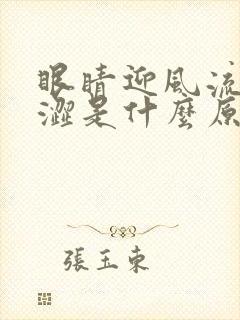 眼睛迎風流
澀是什麼原
張玉東